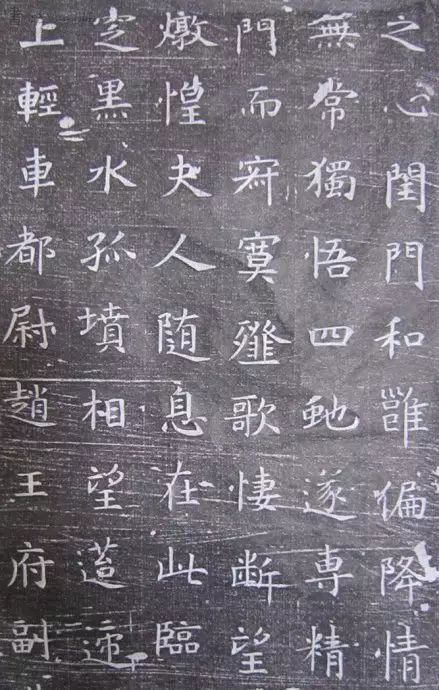 之心閨門和雝偏降情
無常獨悟四虵遂専精
門而寂寞薤歌悽断望
燉煌夫人随息在此臨
窆黒水孤墳相望遰
上輕車都尉趙王府副